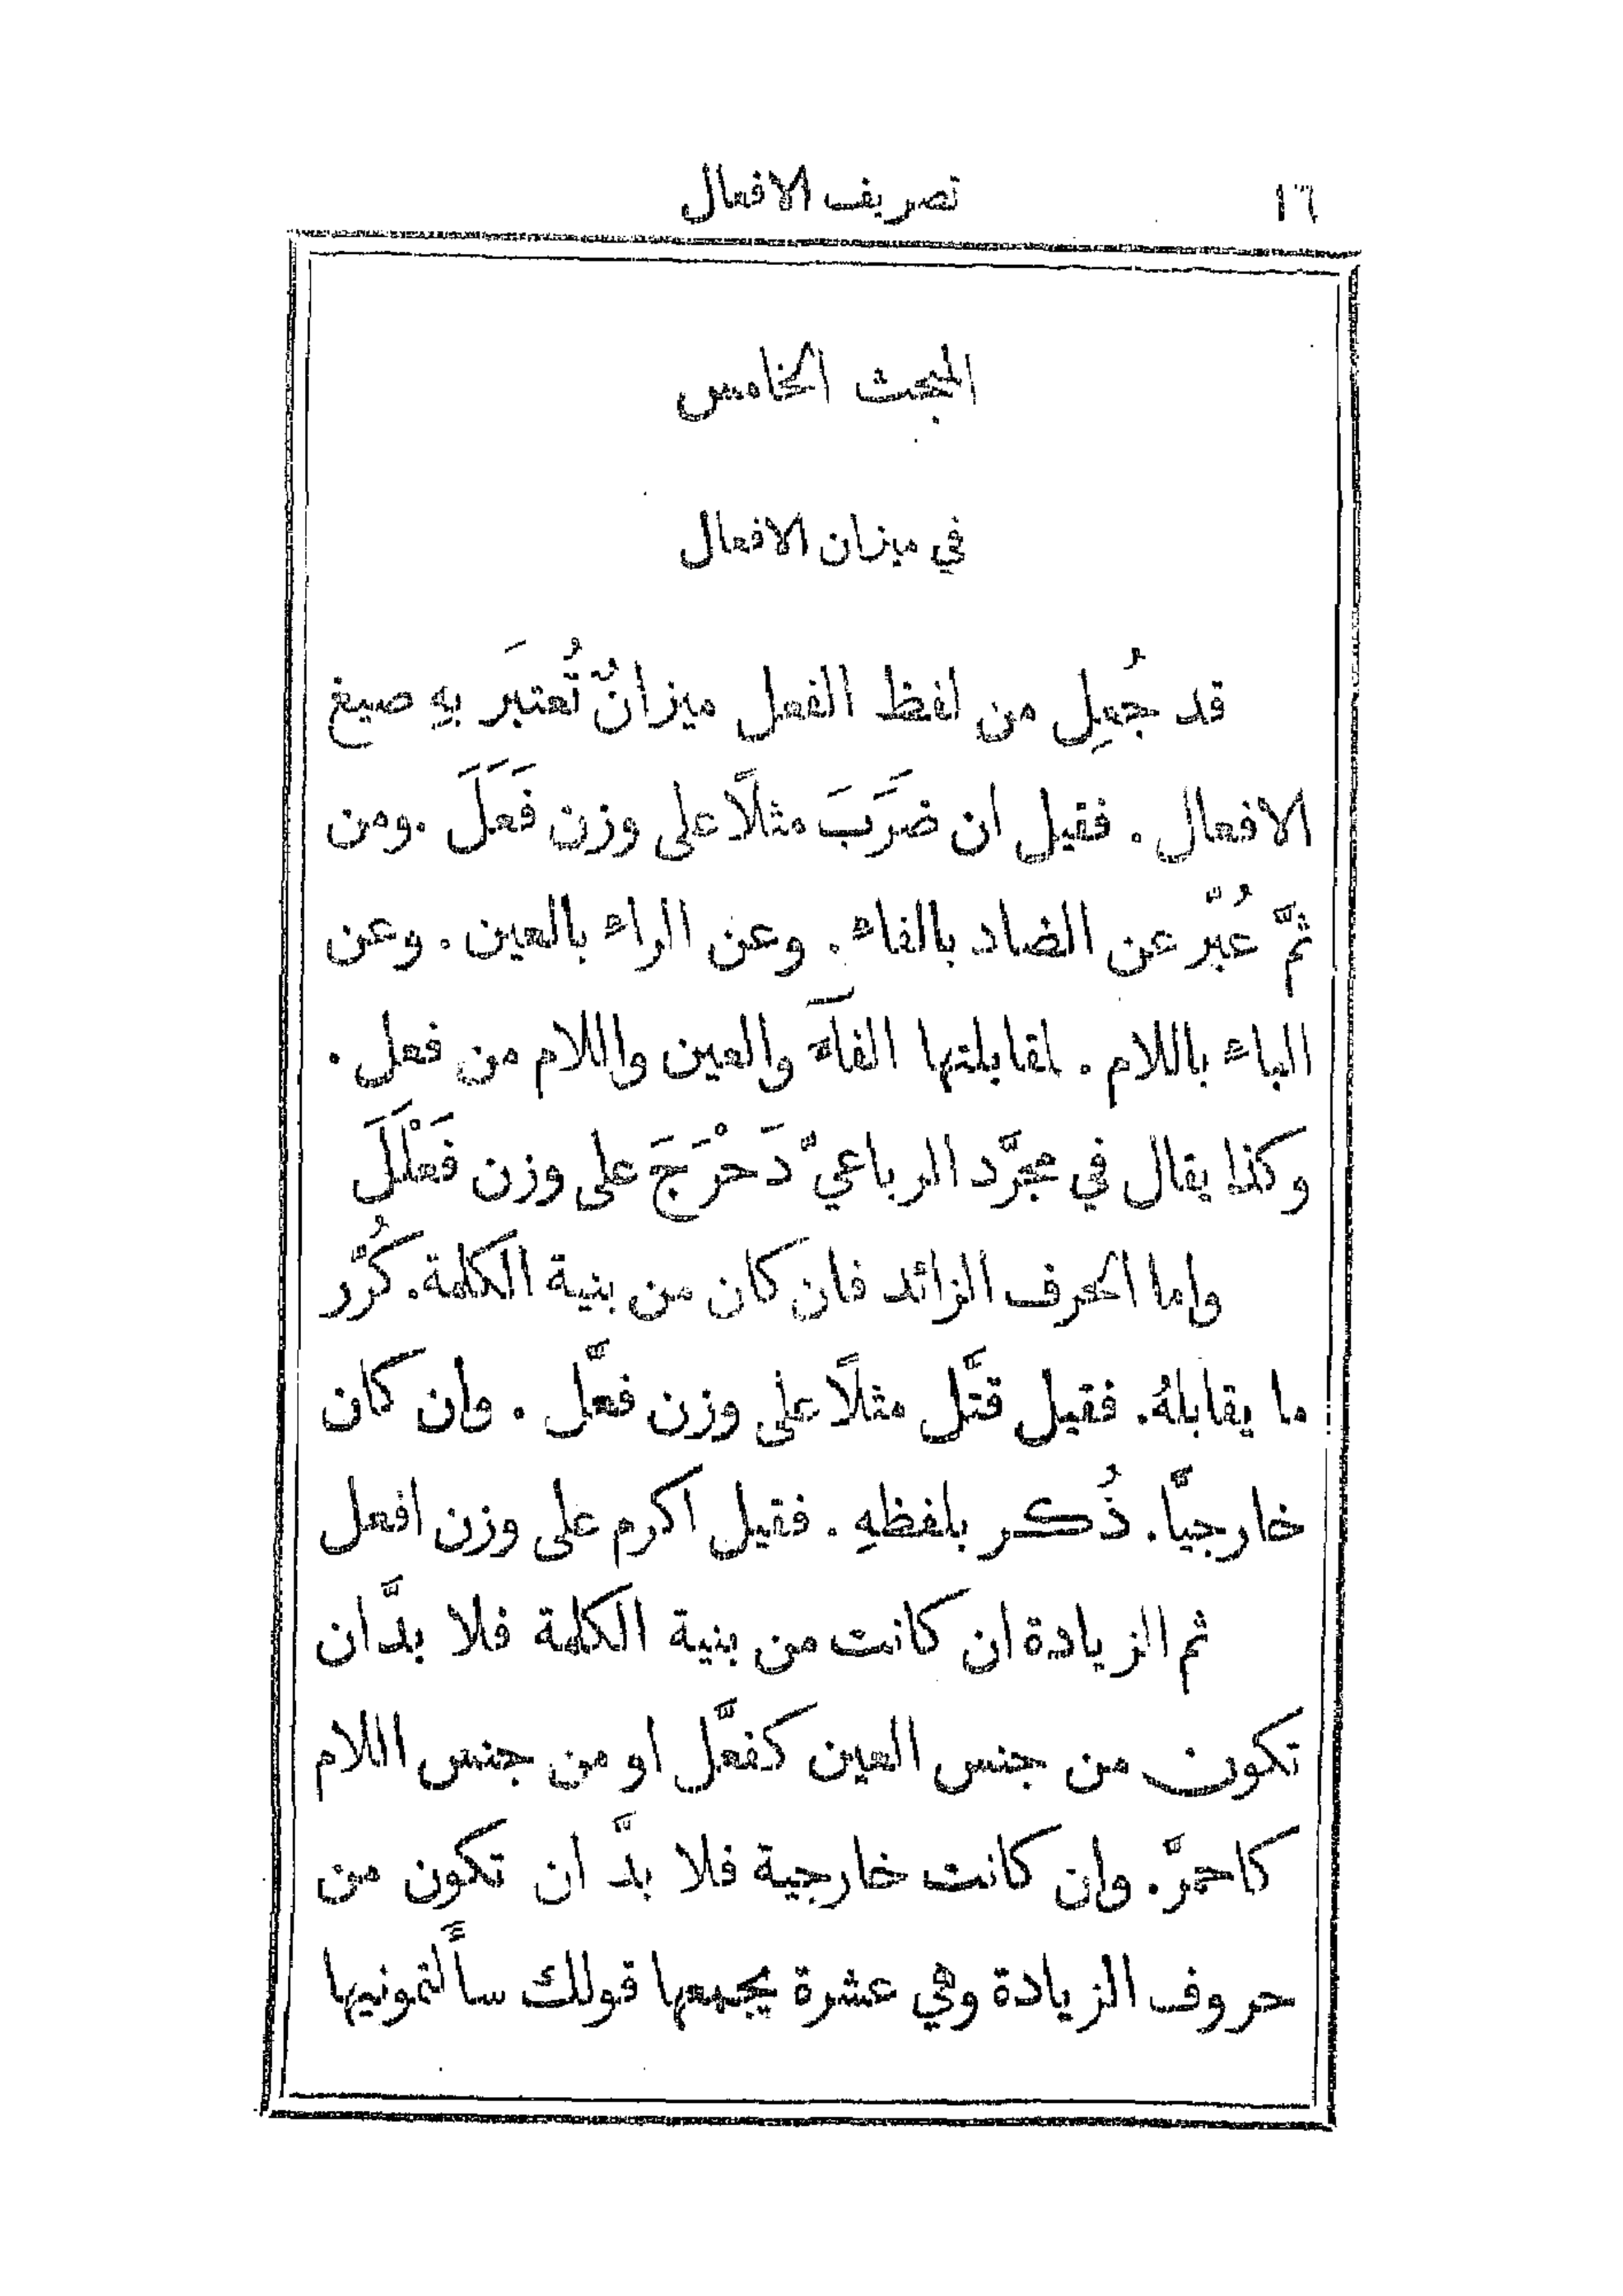 ١٦ تصريف الافعال
المبحث الخامس
في ميزان الافعال
قد جُعِل من لفظ الفعل ميزانٌ تُعتبَر بهِ صيغ
الافعال . فقيل ان ضَرَبَ مثلًا على وزن فَعَلَ . ومن
ثمَّ عُبّر عن الضاد بالفاء . وعن الراء بالعين . وعن
الباء باللام . لمقابلتها الفآء والعين واللام من فعل .
وكذا يقال في مجرَّد الرباعيّ دَحْرَجَ على وزن فَعْلَلَ
واما الحرف الزائد فان كان من بنية الكلمة . كُرّر
ما يقابلهُ . فقيل قتَّل مثلًا على وزن فعَّل . وان كان
خارجيًّا . ذُكر بلفظهِ . فقيل اكرم على وزن افعل
ثم الزيادة ان كانت من بنية الكلمة فلا بدَّ ان
تكون من جنس العين كفعَّل او من جنس اللام
كاحمرَّ . وان كانت خارجية فلا بدَّ ان تكون من
حروف الزيادة وهي عشرة يجمعها قولك سأَلتمونيها